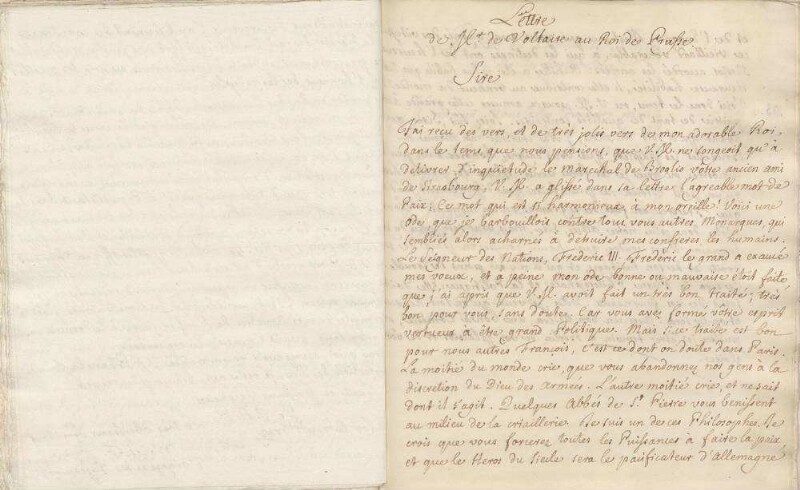 Lettre
de Mr. de Voltaire au Roi de Prusse
Sire
J'ai reçu des vers, et de très jolis vers de mon adorable Roi,
dans le tems que nous pensions, que V. M. ne songeoit qu'à
delivrer d'inquietude le marechal de Broglio vôtre ancien ami
de Strasbourg, V. M. a glissé dans sa lettre l'agreable mot de
Paix; Ce mot qui est si harmonieux à mon oreille! Voici une
ode que je barbouillois contre tous vous autres Monarques, qui
sembliés alors acharnés à detruire mes confreres les humains.
Le Seigneur des Nations, Frederic III. Frederic le grand a exaucé
mes voeux, et a peine mon ode bonne ou mauvaise étoit faite
que j'ai apris que V. M. avoit fait un très bon traité; très
bon pour vous, sans doute. Car vous avez formé vôtre esprit
vertueux à être grand Politique. Mais si ce traité est bon
pour nous autres François, C'est ce dont on doute dans Paris.
La moitié du monde crie, que vous abandonnez nos gens à la
discretion du Dieu des Armées. L'autre moitié crie, et ne sait
dont il s'agit. Quelques Abbés de St. Pierre vous benissent
au milieu de la criaillerie. Je suis un de ces Philosophes. Je
crois que vous forcerez toutes les Puissances à faire la paix
et que le Heros du Siecle sera le pacificateur d'Allemagne